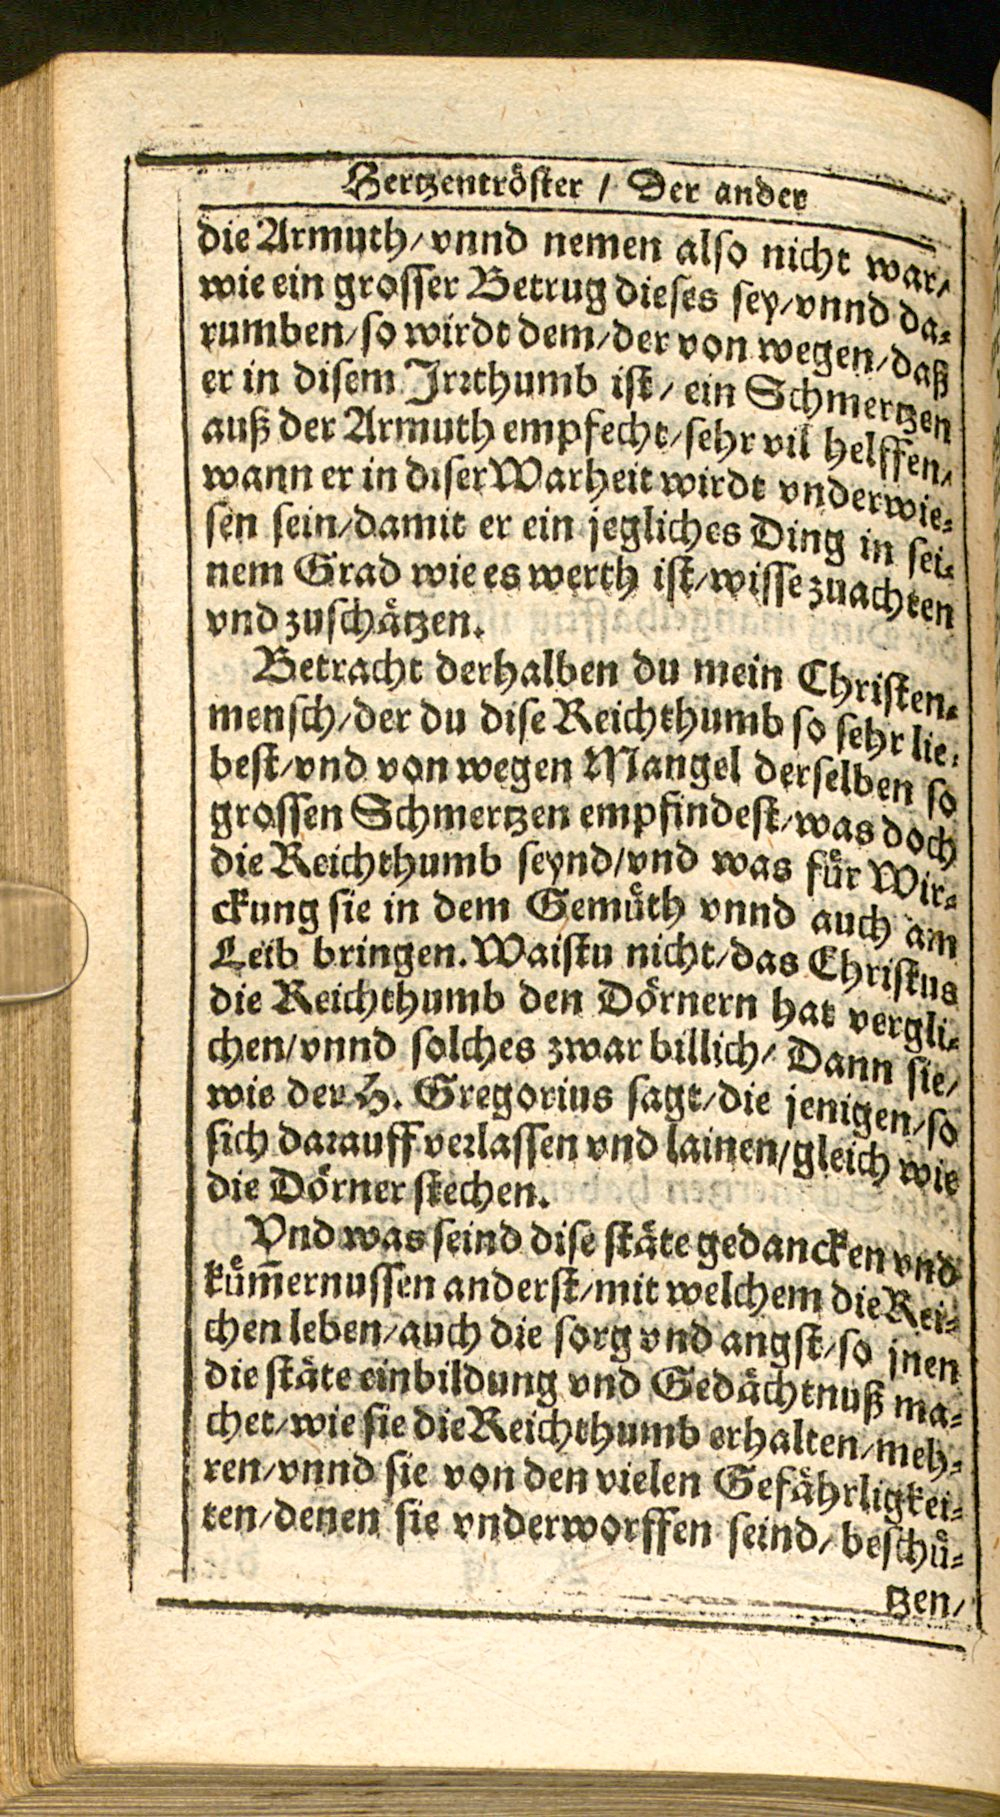 Hertzentröster / Der ander
die Armuth/ vnnd nemen also nicht war/
wie ein grosser Betrug dieses sey/ vnnd da-
rumben/ so wirdt dem/ der von wegen/ daß
er in disem Irrthumb ist/ ein Schmertzen
auß der Armuth empfecht/ sehr vil helffen/
wann er in diser Warheit wirdt vnderwie-
sen sein/ damit er ein jegliches Ding in sei-
nem Grad wie es werth ist/ wisse zuachten
vnd zuschätzen.
Betracht derhalben du mein Christen-
mensch/ der du dise Reichthumb so sehr lie-
best/ vnd von wegen Mangel derselben so
grossen Schmertzen empfindest/ was doch
die Reichthumb seynd/ vnd was für Wir-
ckung sie in dem Gemüth vnnd auch am
Leib bringen. Waistu nicht/ das Christus
die Reichthumb den Dörnern hat vergli-
chen/ vnnd solches zwar billich/ Dann sie/
wie der H. Gregorius sagt/ die jenigen/ so
sich darauff verlassen vnd lainen/ gleich wie
die Dörner stechen.
Vnd was seind dise stäte gedancken vnd
küm̃ernussen anderst/ mit welchem die Rei-
chen leben/ auch die sorg vnd angst/ so jnen
die stäte einbildung vnd Gedächtnuß ma-
chet/ wie sie die Reichthumb erhalten/ meh-
ren/ vnnd sie von den vielen Gefährligkei-
ten/ denen sie vnderworffen seind/ beschü-
tzen/